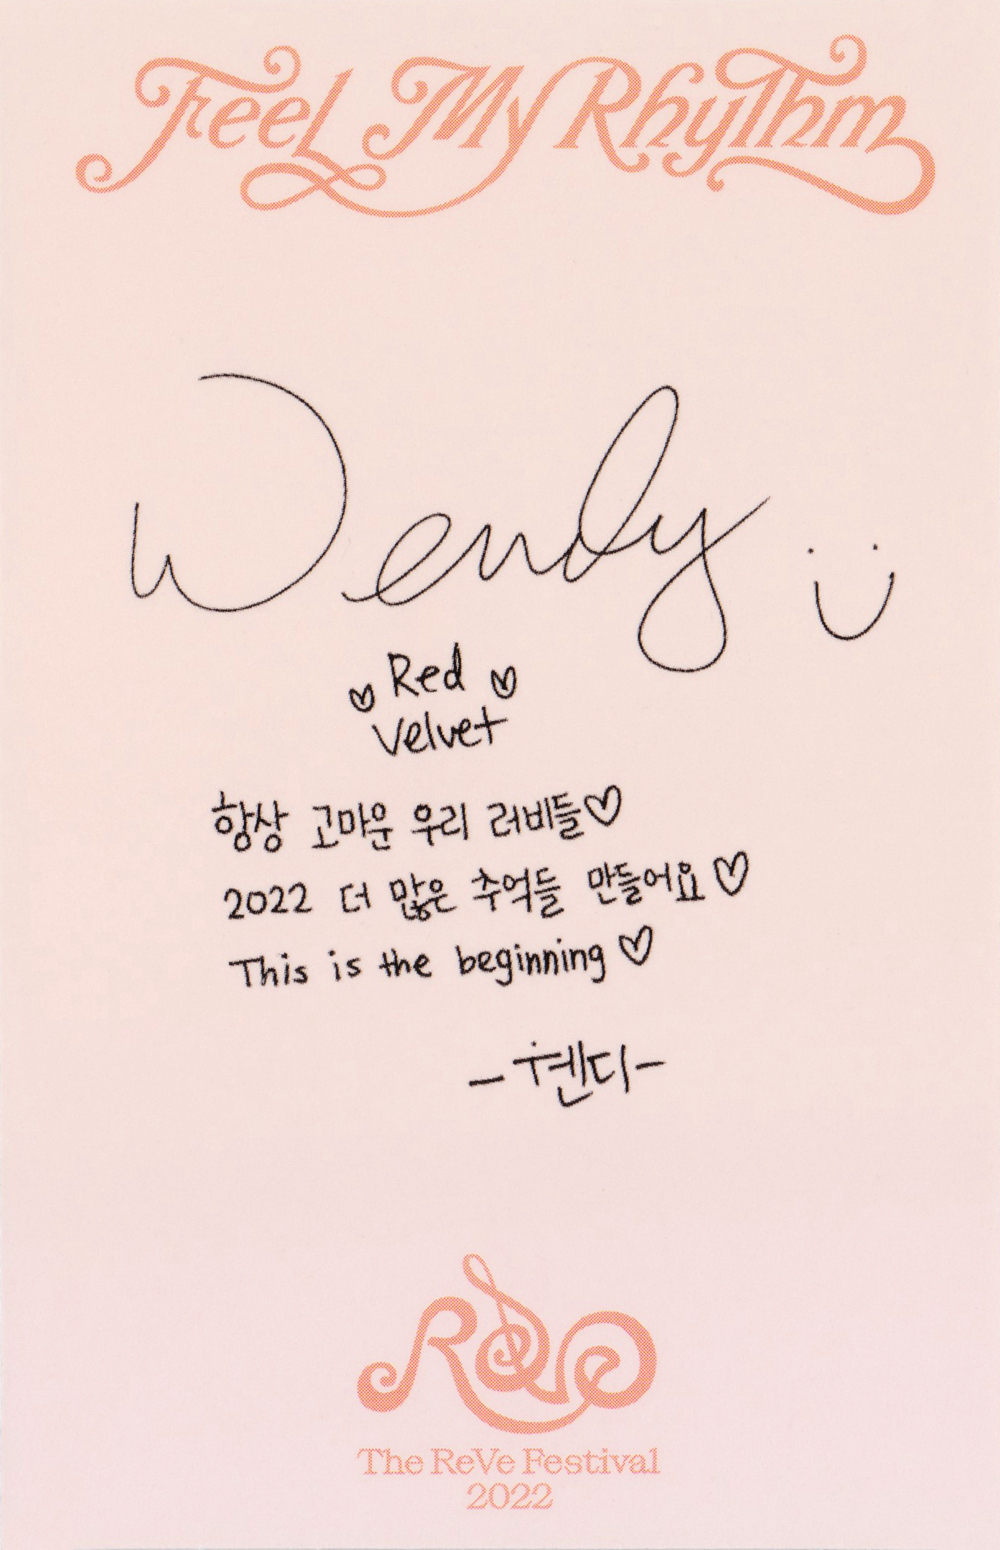 Feel My Rhythm
Wendy
Red
Velvet
항상 고마운 우리 러비들♡
2022 더 많은 추억들 만들어요♡
This is the beginning♡
-웬디-
ReVe
The ReVe Festival
2022